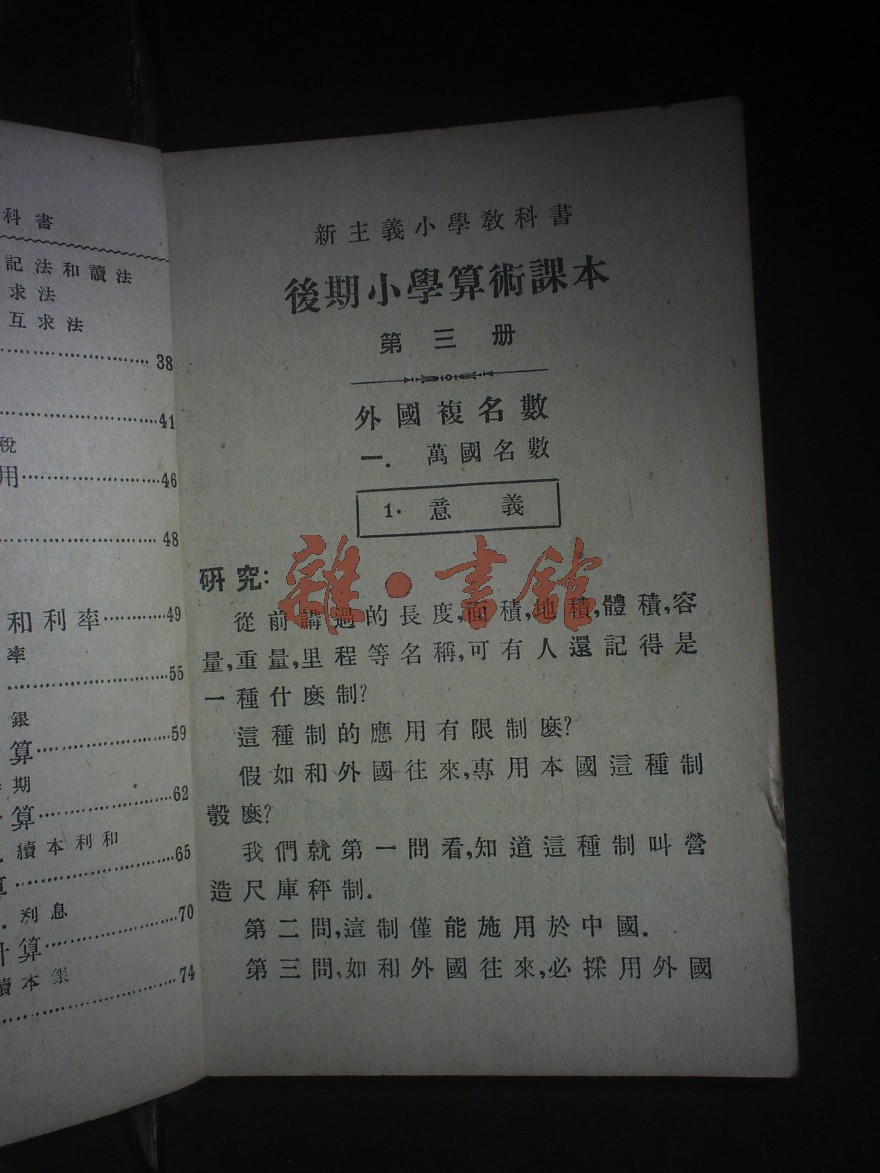 科書
記法和讀法
求法
互求法
38
41
稅
用 46
48
和利率 49
率
55
銀
算 59
期
算 62
續本利和
65
利息
70
計算
續本銀
74
新主義小學敎科書
後期小學算術課本
第三册
外國複名數
一. 萬國名數
1. 意義
硏究:
從前講過的長度,面積,地積,體積,容
量,重量,里程等名稱,可有人還記得是
一種什麽制?
這種制的應用有限制麽?
假如和外國往來,專用本國這種制
彀麽?
我們就第一問看,知道這種制叫營
造尺庫秤制.
第二問,這制僅能施用於中國.
第三問,如和外國往來,必採用外國
雜·書館